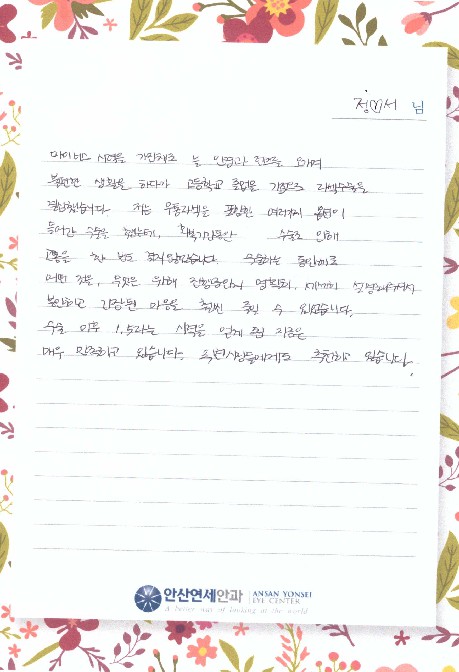 정♡서 님
마이너스 시력을 가진채로 늘 안경과 렌즈를 오가며
불편한 생활을 하다가 고등학교 졸업을 기점으로 라식수술을
결심했습니다. 저는 무통라식을 포함한 여러가지 옵션이
들어간 수술을 했는데, 회복기간동안 수술로 인해
고통을 한 번도 겪지 않았습니다. 수술하는 동안에도
어떤 것을, 무엇을 위해 진행중인지 명확히, 세세히 설명해주셔서
불안하고 긴장된 마음을 훨씬 줄일 수 있었습니다.
수술 이후 1.5라는 시력을 얻게 된 지금은
매우 만족하고 있습니다. 주변사람들에게도 추천하고 있습니다.
안산연세안과 ANSAN YONSEI
EYE CENTER
A better way of looking at the world